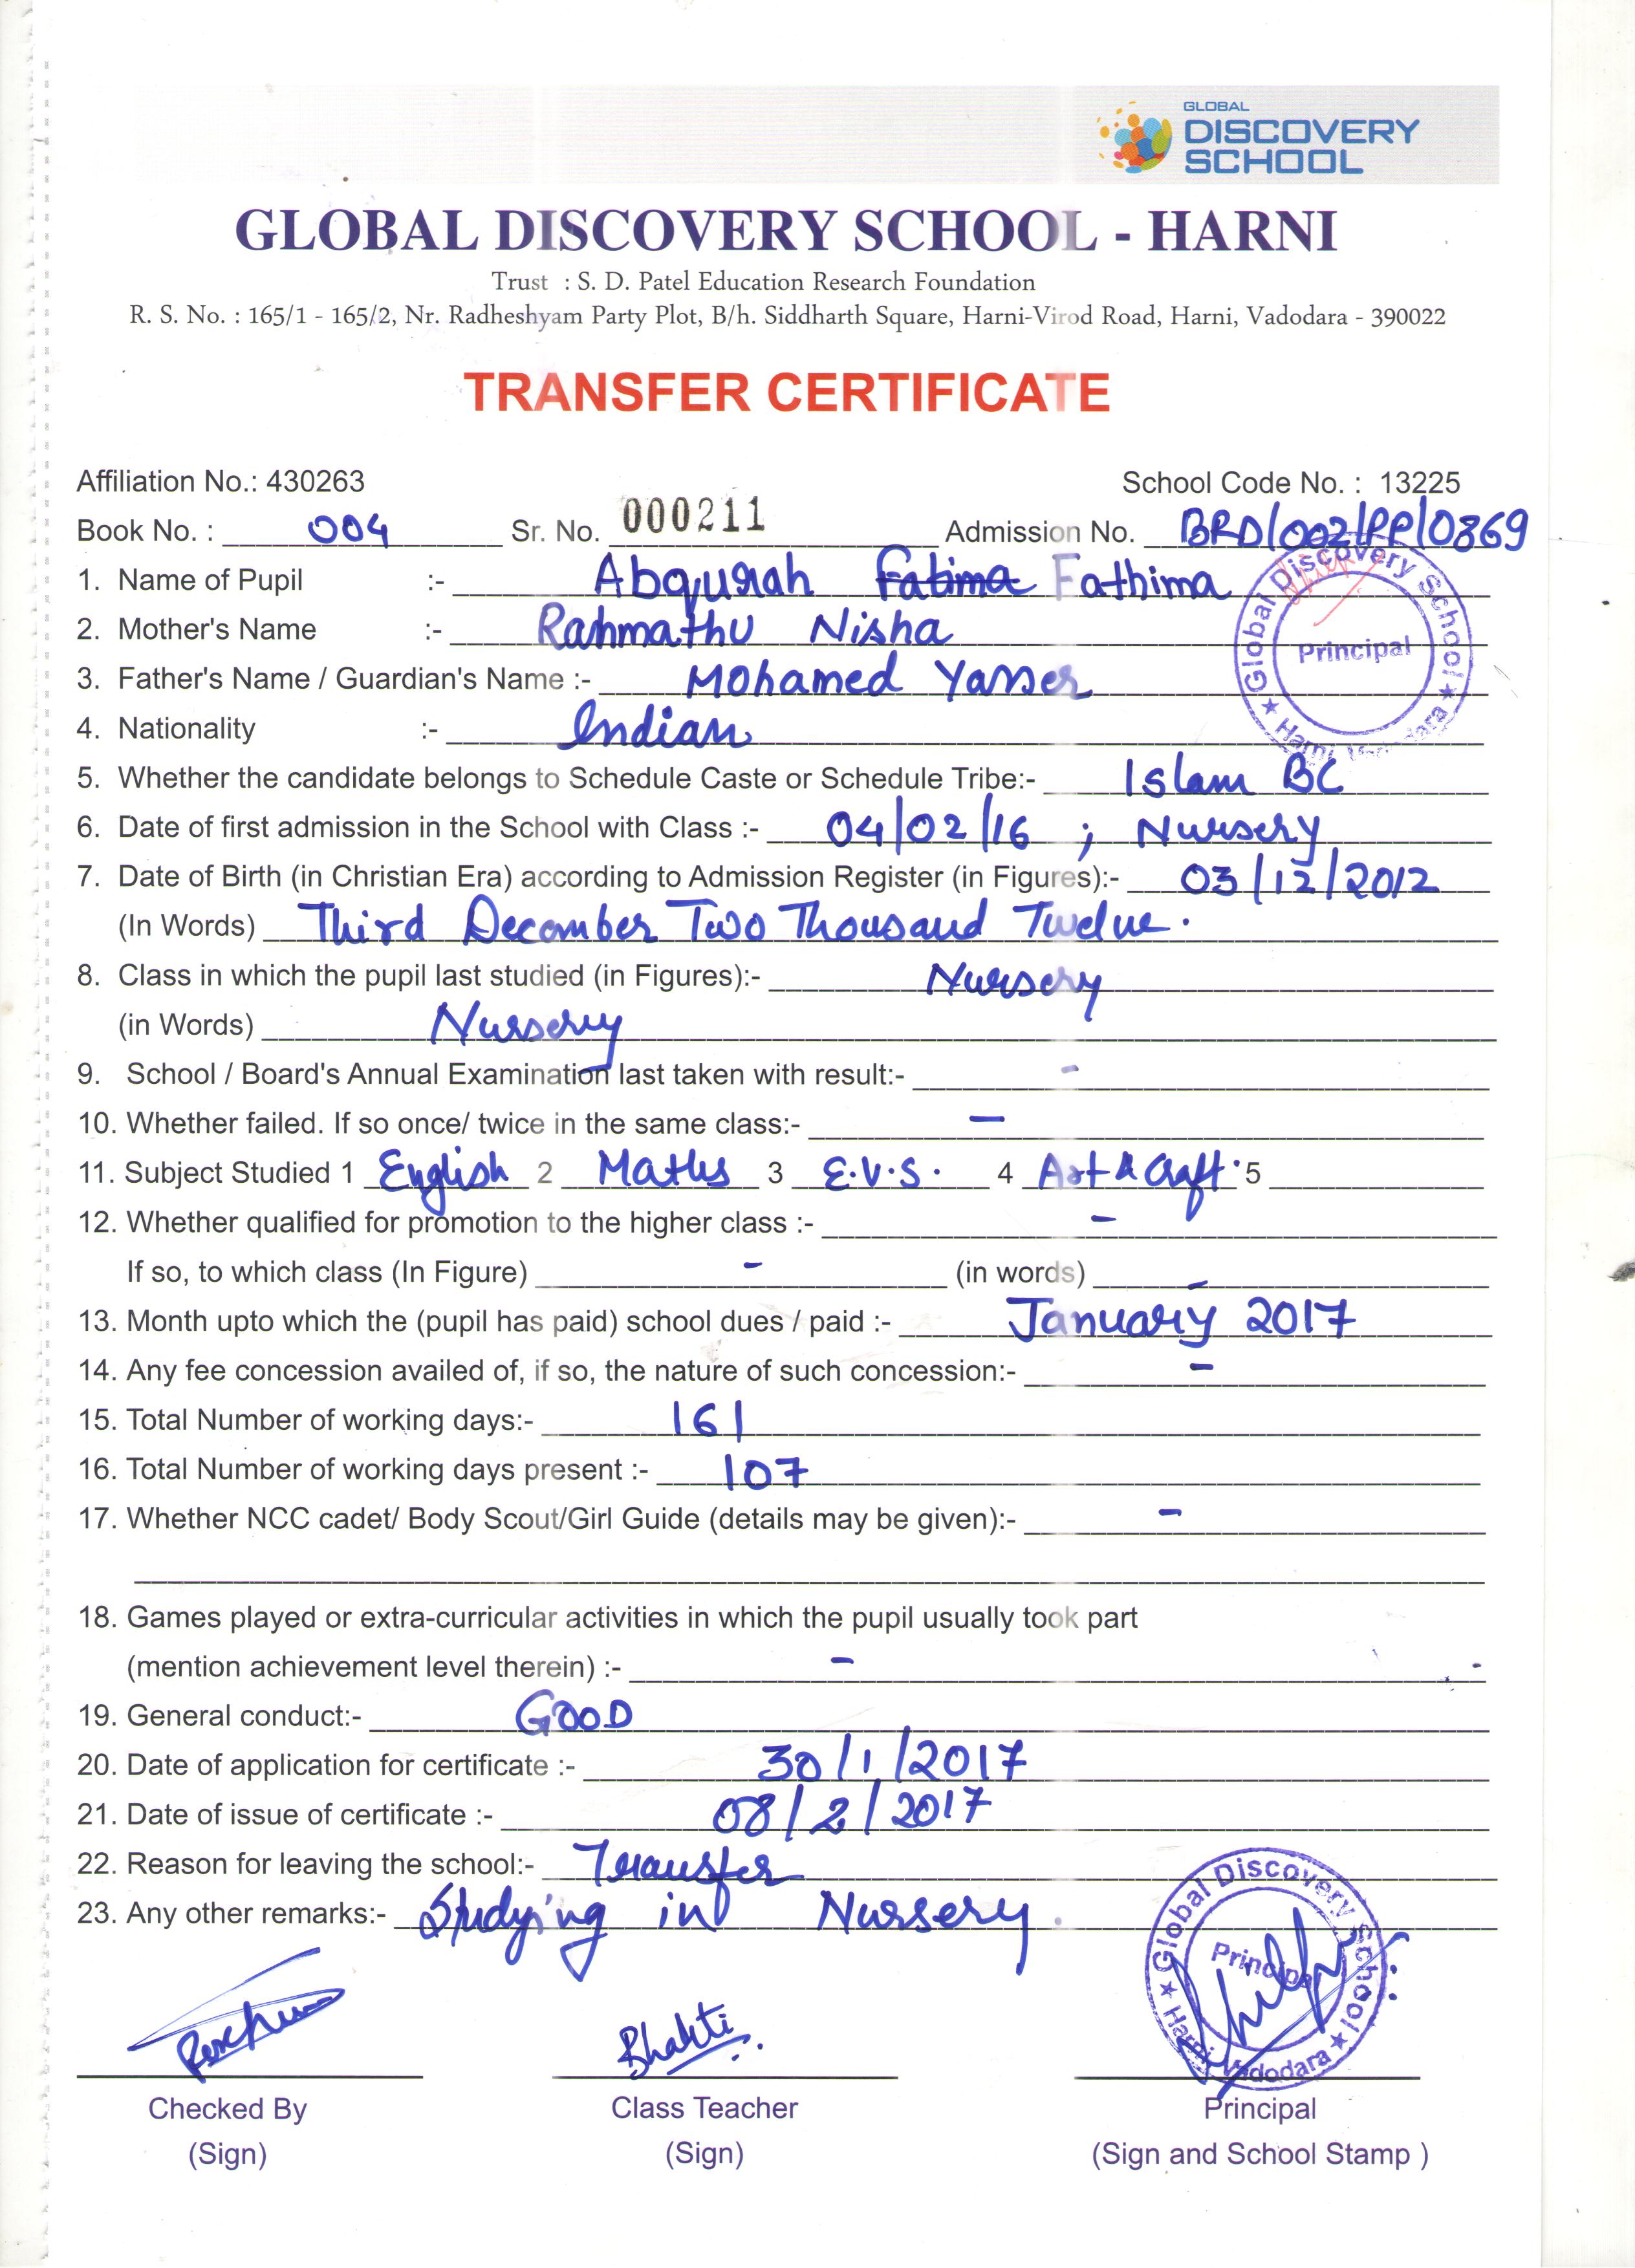 GLOBAL
DISCOVERY
SCHOOL
GLOBAL DISCOVERY SCHOOL - HARNI
Trust : S. D. Patel Education Research Foundation
R. S. No. : 165/1 - 165/2, Nr. Radheshyam Party Plot, B/h. Siddharth Square, Harni-Virod Road, Harni, Vadodara - 390022
TRANSFER CERTIFICATE
Affiliation No.: 430263 School Code No. : 13225
Book No. : 004 Sr. No. 000211 Admission No. BRD/002/PP/0869
1. Name of Pupil :- Abqurah Fatima Fathima
2. Mother's Name :- Rahmathu Nisha
3. Father's Name / Guardian's Name :- Mohamed Yasser
4. Nationality :- Indian
Global Discovery School ★ Harni, Vadodara ★
Principal
5. Whether the candidate belongs to Schedule Caste or Schedule Tribe:- Islam BC
6. Date of first admission in the School with Class :- 04/02/16 ; Nursery
7. Date of Birth (in Christian Era) according to Admission Register (in Figures):- 03/12/2012
(In Words) Third December Two Thousand Twelve.
8. Class in which the pupil last studied (in Figures):- Nursery
(in Words) Nursery
9. School / Board's Annual Examination last taken with result:- -
10. Whether failed. If so once/ twice in the same class:- -
11. Subject Studied 1 English 2 Maths 3 E.V.S. 4 Art & Craft. 5
12. Whether qualified for promotion to the higher class :- -
If so, to which class (In Figure) - (in words) -
13. Month upto which the (pupil has paid) school dues / paid :- January 2017
14. Any fee concession availed of, if so, the nature of such concession:- -
15. Total Number of working days:- 161
16. Total Number of working days present :- 107
17. Whether NCC cadet/ Body Scout/Girl Guide (details may be given):- -
18. Games played or extra-curricular activities in which the pupil usually took part
(mention achievement level therein) :- -
19. General conduct:- GOOD
20. Date of application for certificate :- 30/1/2017
21. Date of issue of certificate :- 08/2/2017
22. Reason for leaving the school:- Transfer
23. Any other remarks:- Studying in Nursery.
Global Discovery School ★ Harni, Vadodara ★
Principal
Bhakti
Checked By Class Teacher Principal
(Sign) (Sign) (Sign and School Stamp )